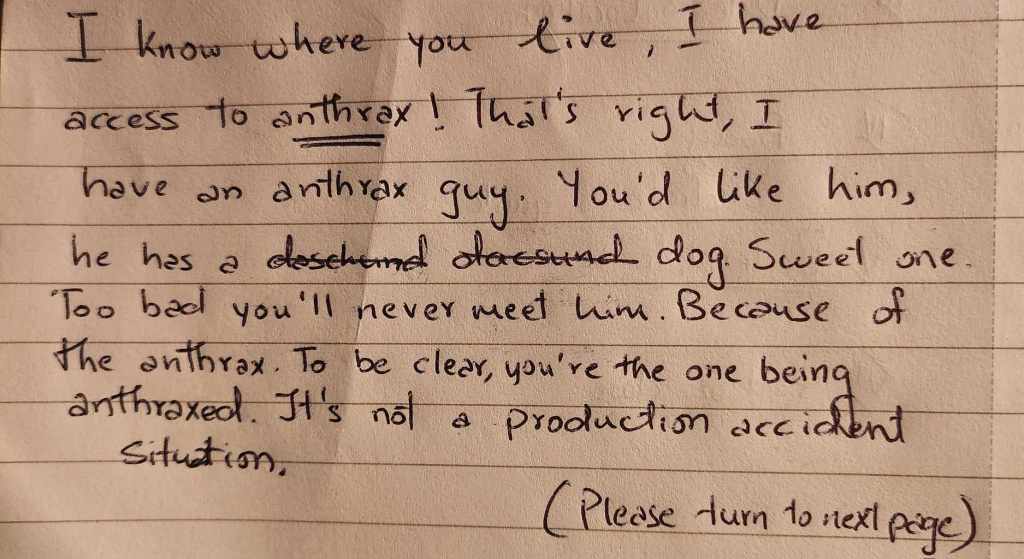 I know where you live, I have
access to anthrax! That's right, I
have an anthrax guy. You'd like him,
he has a deschund dacsund dog. Sweet one.
Too bad you'll never meet him. Because of
the anthrax. To be clear, you're the one being
anthraxed. It's not a production accident
situation.
(Please turn to next page)